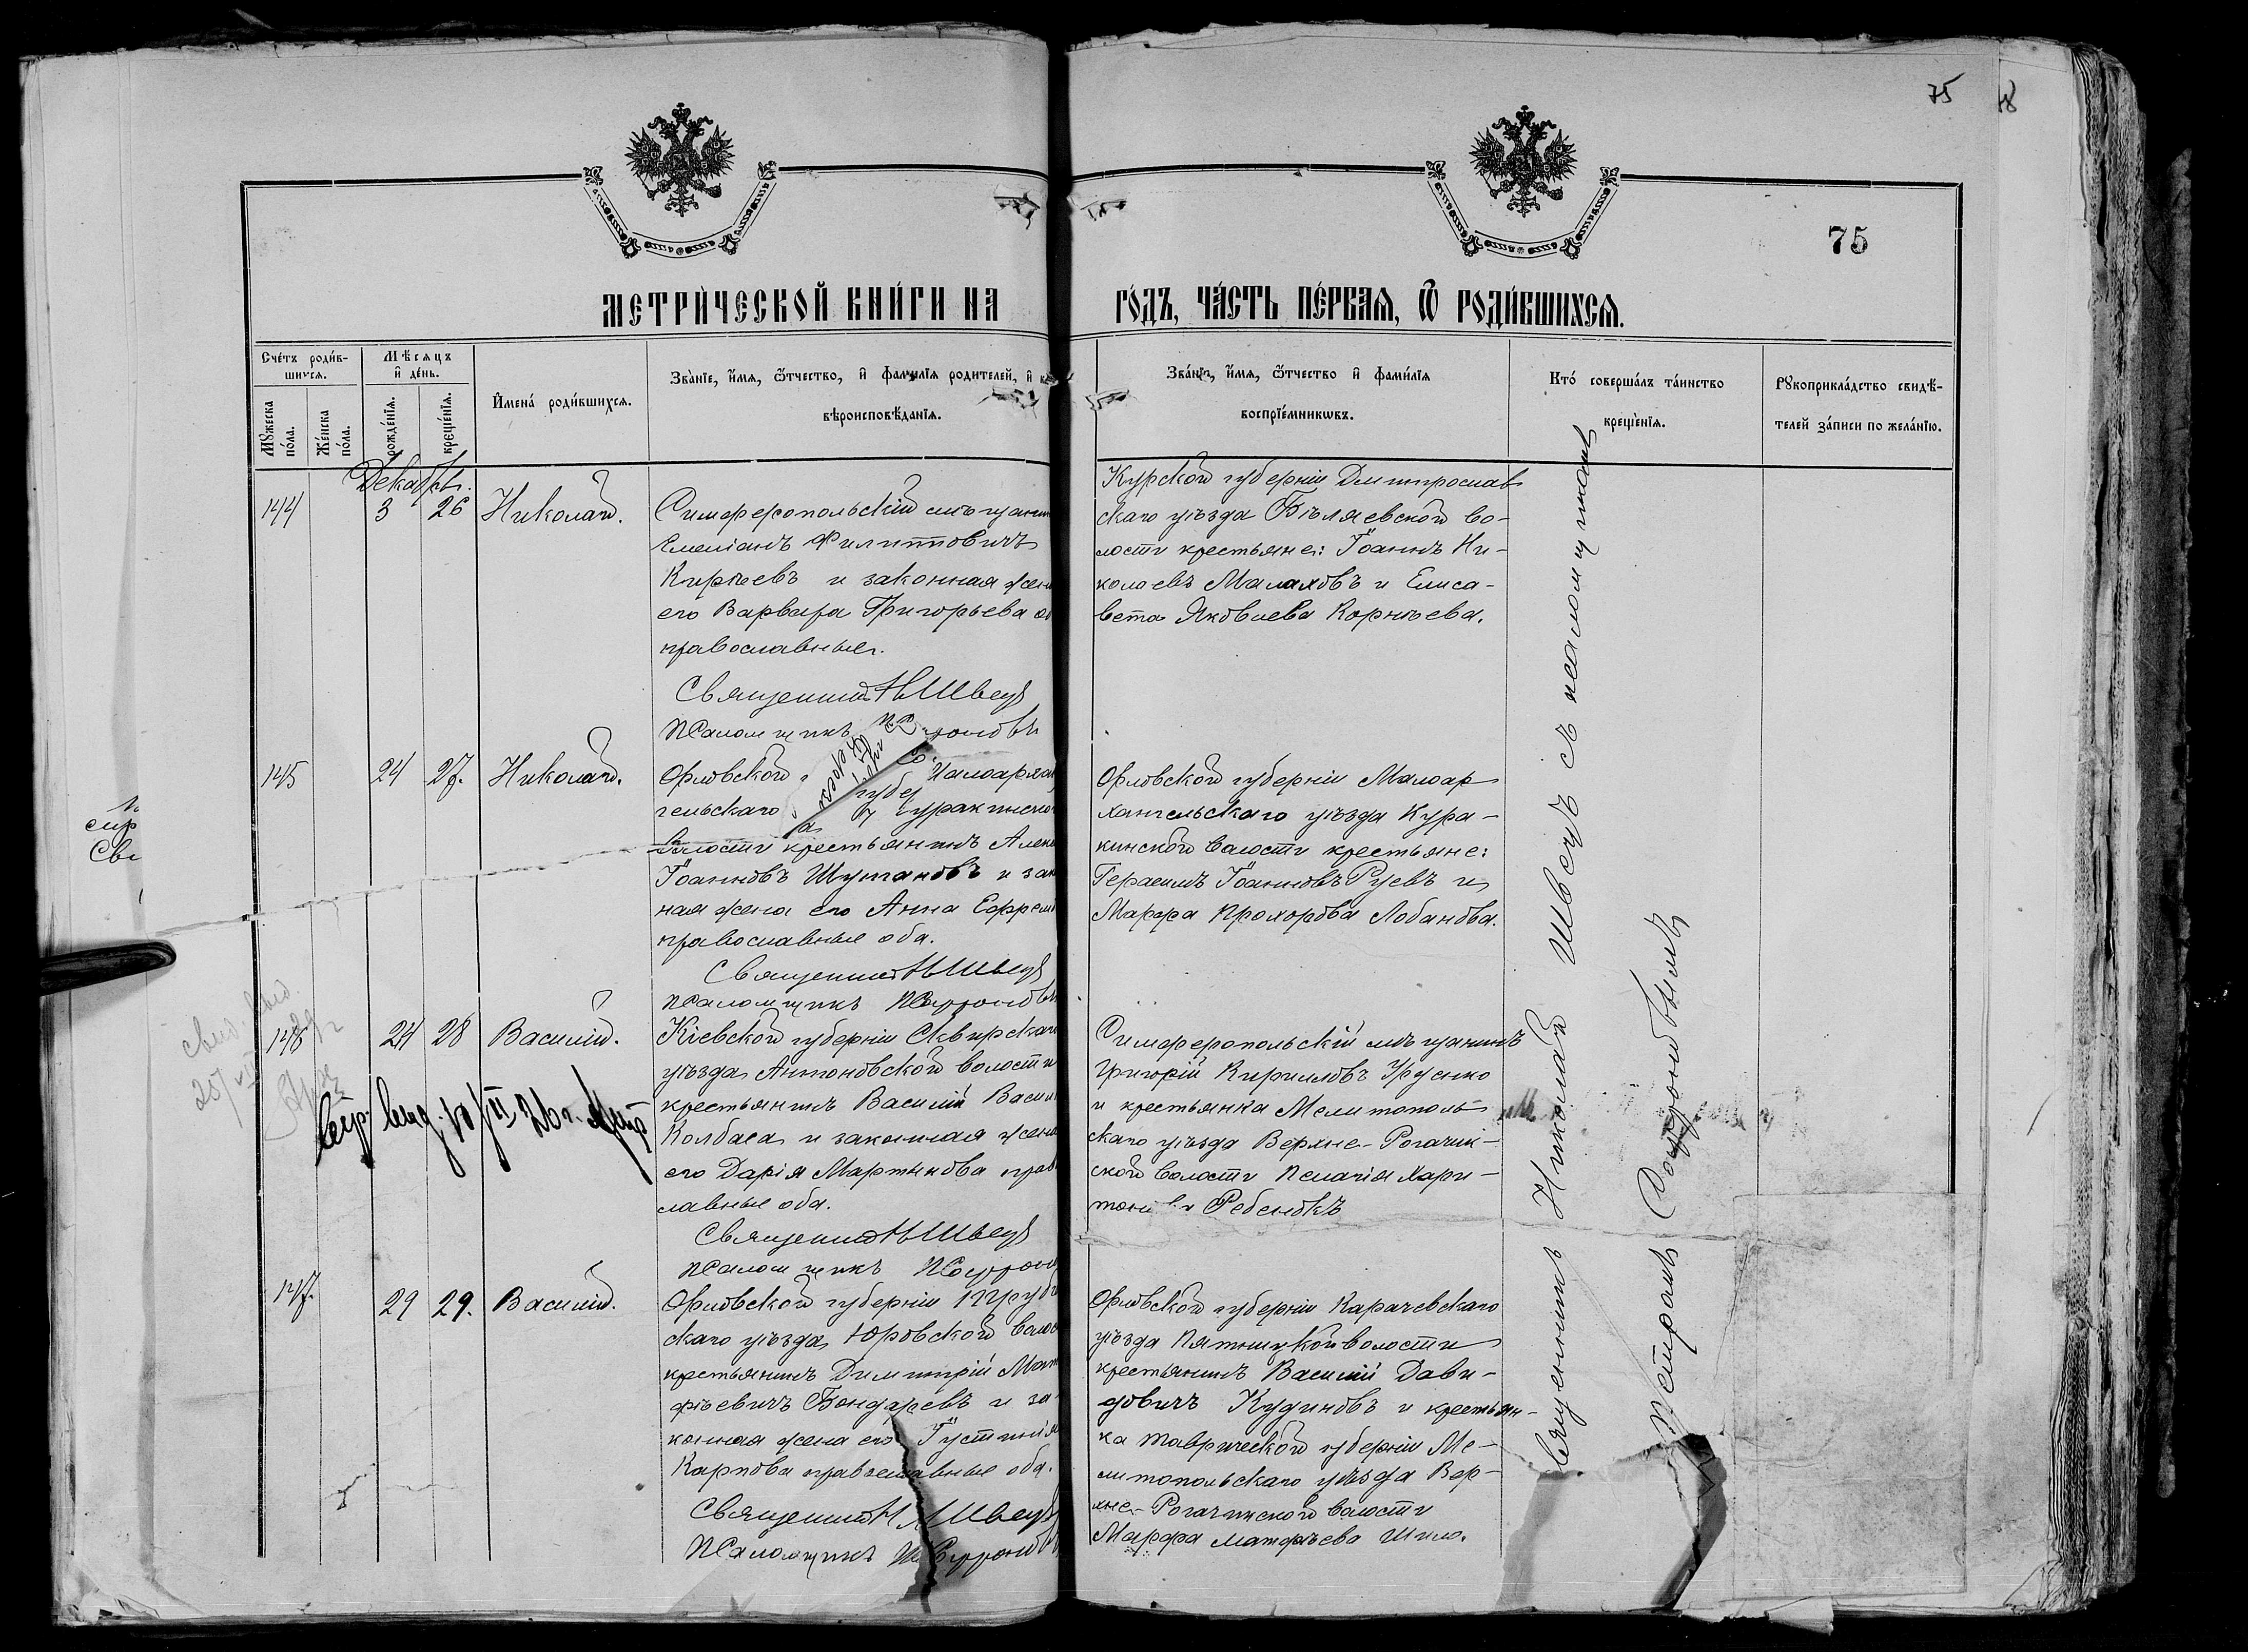 75
75
МЕТРИЧЕСКОЙ КНИГИ НА ГОДЪ, ЧАСТЬ ПЕРВАЯ, Ѿ РОДИВШИХСЯ.
Счетъ родив-
шихся.
Мужеска
пола.
Женска
пола.
Мѣсяцъ
и день.
рожденія.
крещенія.
Имена родившихся.
Званіе, имя, отчество, и фамилія родителей, и
вѣроисповѣданія.
Званіе, имя, отчество и фамилія
воспріемниковъ.
Кто совершалъ таинство
крещенія.
Рукоприкладство свидѣ-
телей записи по желанію.
Декабрь.
144 3 26 Николай.
Симферопольскій мѣщанин
Емеліанъ Филипповичъ
Кирѣевъ и законная жена
его Варвара Григорьева
православные.
Священникъ Н Швецъ
Псаломщикъ
Курской губерніи Дмитрослав
скаго уѣзда Бѣляевской во-
лости крестьяне: Іоаннъ Ни-
колаевъ Малаховъ и Елиса-
вета Яковлева Корнѣева.
145 24 27. Николай.
Орловской
гельскаго
волости крестьянинъ
Іоанновъ Шутановъ и зак
ная жена его Анна Ефрем
православные оба.
Священникъ Н Швецъ
Псаломщикъ П Софроновъ
Орловской губерніи Малоар
хангельскаго уѣзда Кура-
кинской волости крестьяне:
Герасимъ Іоанновъ Гусевъ и
Марфа Прохорова Лобанова.
146 24 28 Василій.
Кіевской губерніи Сквирскаго
уѣзда Антоновской волости
крестьянинъ Василій Васил
Колбаса и законная жена
его Дарія Мартынова прав
славные оба.
Священникъ Н Швецъ
Псаломщикъ П Софрон
Симферопольскій мѣщанинъ
Григорій Кирилловъ
и крестьянка Мелитополь
скаго уѣзда Верхне-Рогачик-
ской волости Пелагія Хари-
Ребенокъ
147. 29 29. Василій.
Орловской губерніи
скаго уѣзда Юровской воло
крестьянинъ Димитрій Мат
фѣевичъ Бондаревъ и за-
конная жена его Іустинія
Карпова православные оба.
Священникъ Н Швецъ
Псаломщикъ П Софроновъ
Орловской губерніи Карачевскаго
уѣзда Пятницкой волости
крестьянинъ Василій Дави-
довичъ Кудиновъ и крестьян-
ка Таврической губерніи Ме-
литопольскаго уѣзда Вер-
хне-Рогачикской волости
Марфа Матфѣева Шило.
Священникъ Николай Швецъ съ псаломщикомъ
Петромъ Софроновымъ